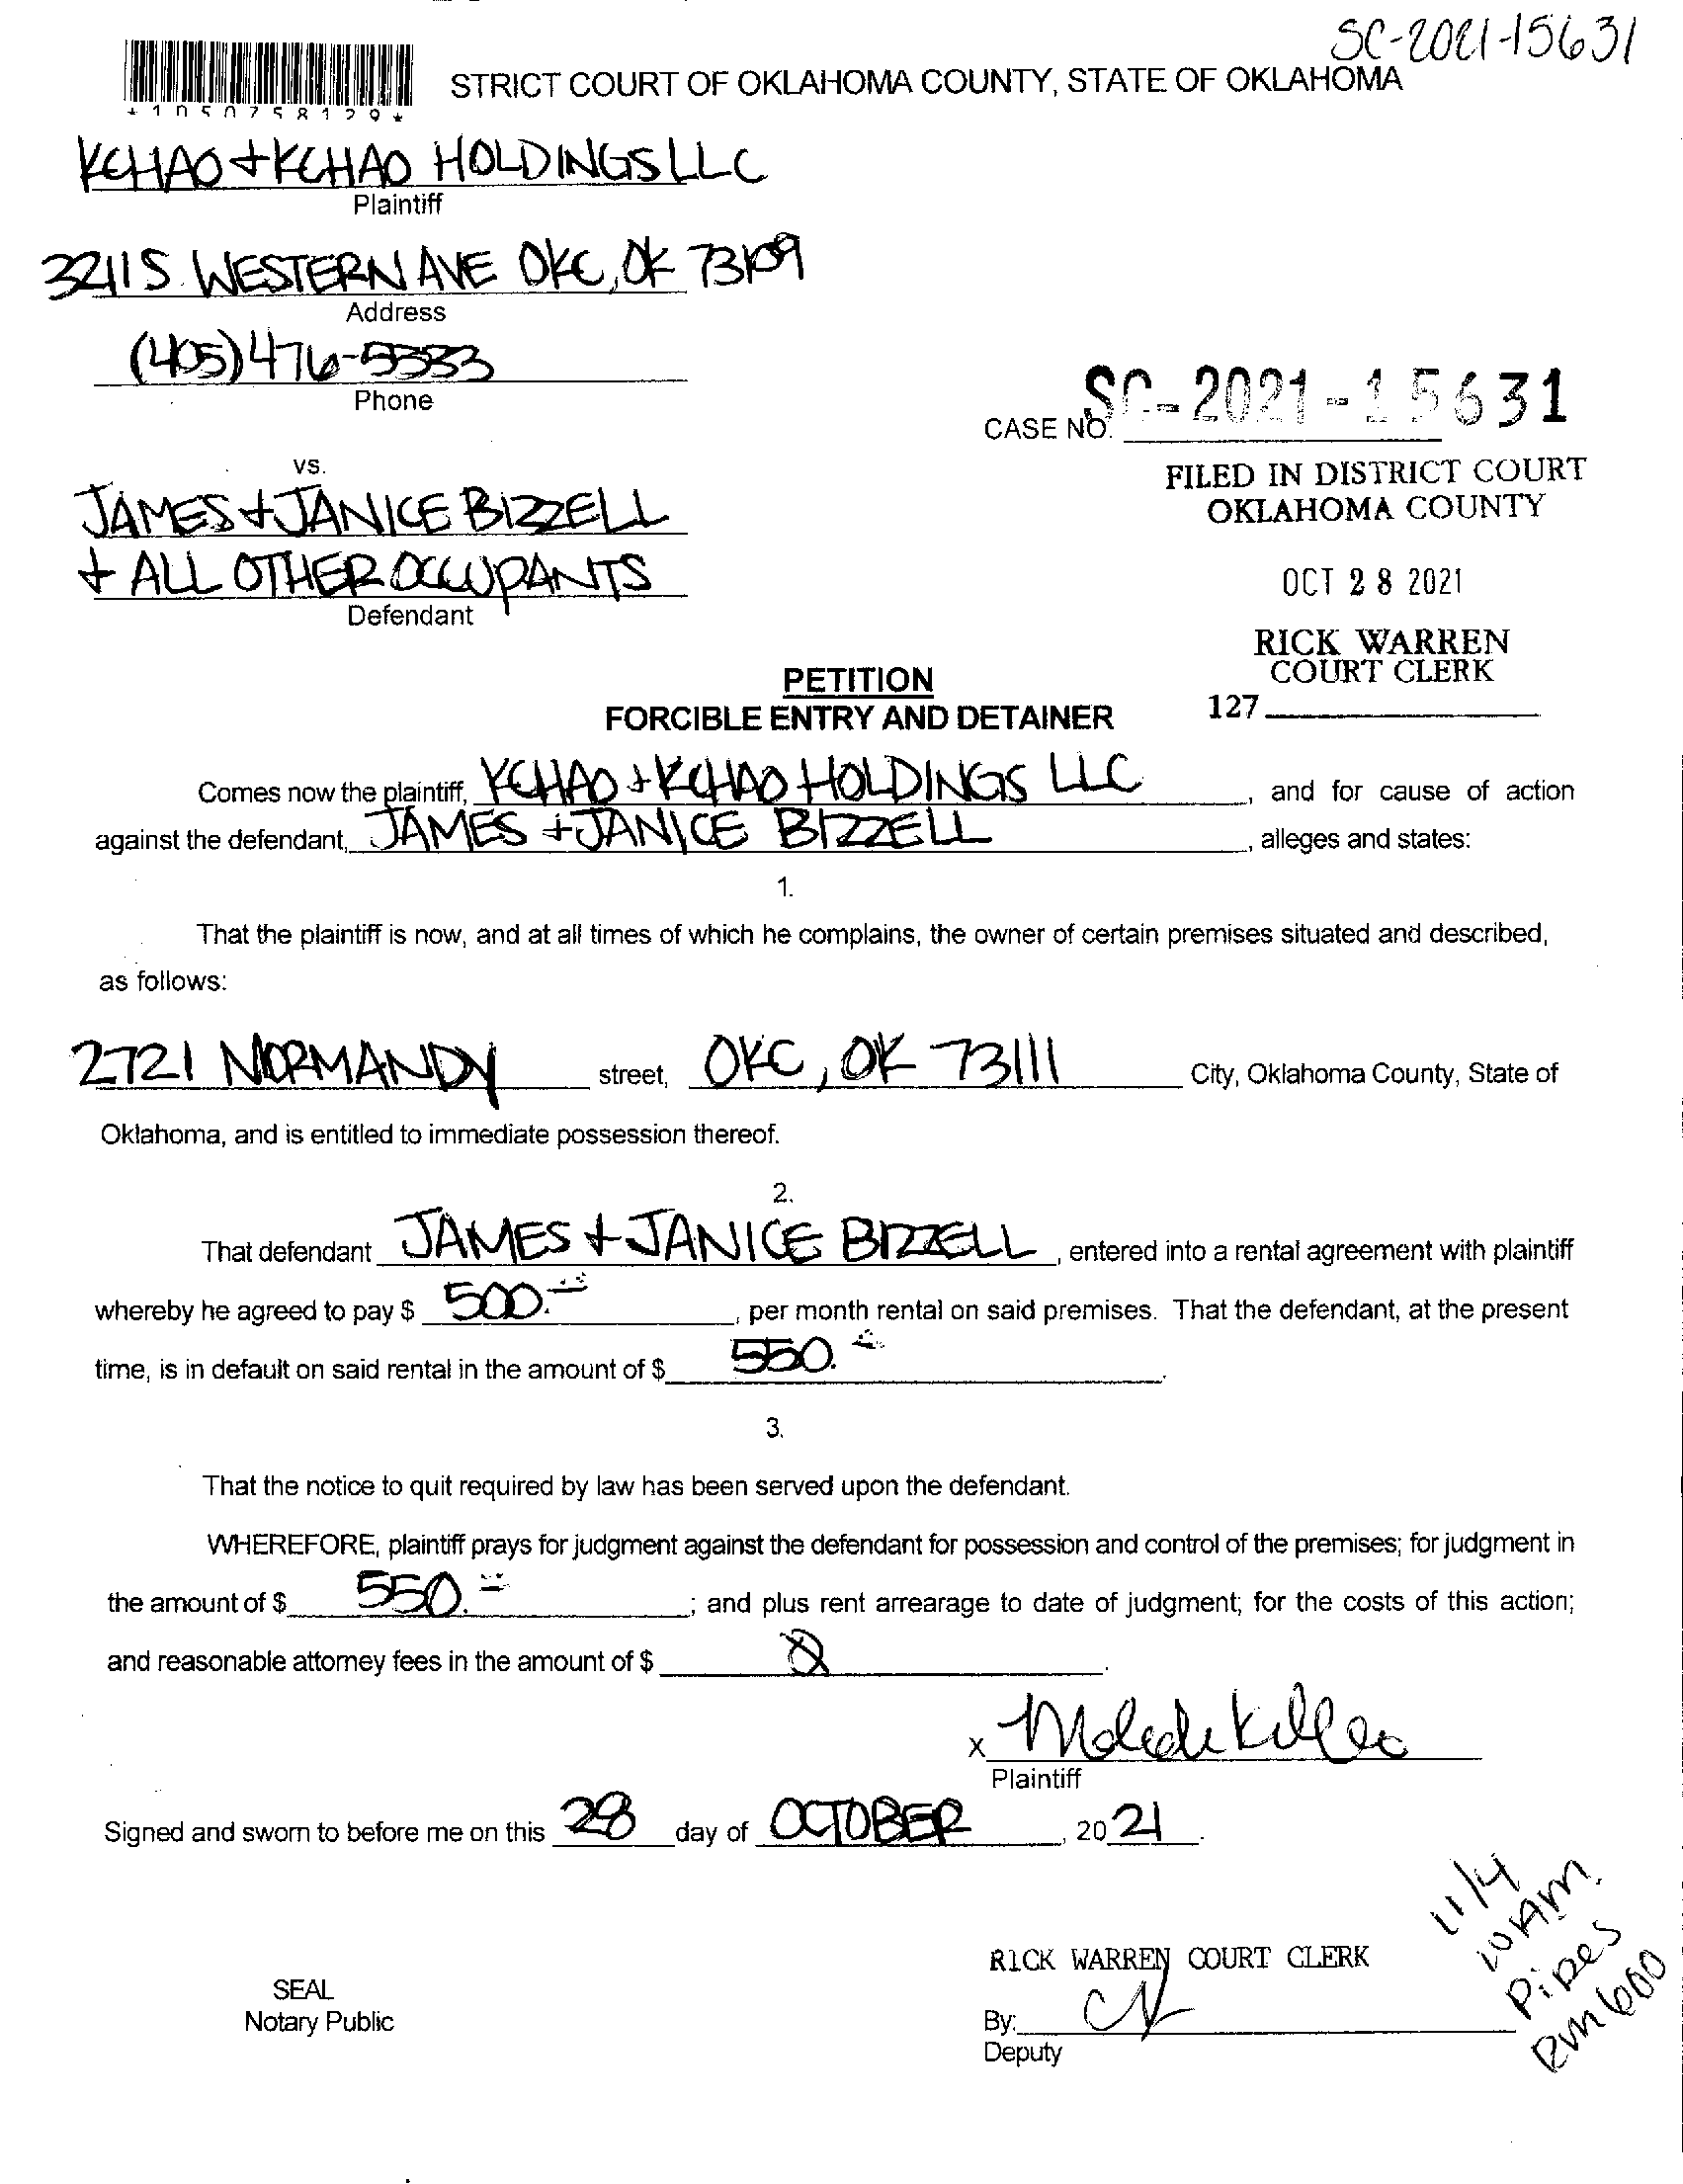 SC-2021-15631
STRICT COURT OF OKLAHOMA COUNTY, STATE OF OKLAHOMA
*1050758129*
KCHAO + KCHAO HOLDINGS LLC
Plaintiff
3211 S. WESTERN AVE OKC, OK 73109
Address
(405) 476-5333
Phone
CASE NO. SC-2021-15631
vs.
FILED IN DISTRICT COURT
OKLAHOMA COUNTY
JAMES + JANICE BIZZELL
+ ALL OTHER OCCUPANTS
Defendant
OCT 28 2021
RICK WARREN
COURT CLERK
127
PETITION
FORCIBLE ENTRY AND DETAINER
Comes now the plaintiff, KCHAO + KCHAO HOLDINGS LLC, and for cause of action
against the defendant, JAMES + JANICE BIZZELL, alleges and states:
1.
That the plaintiff is now, and at all times of which he complains, the owner of certain premises situated and described,
as follows:
2721 NORMANDY street, OKC, OK 73111 City, Oklahoma County, State of
Oklahoma, and is entitled to immediate possession thereof.
2.
That defendant JAMES + JANICE BIZZELL, entered into a rental agreement with plaintiff
whereby he agreed to pay $ 500.--, per month rental on said premises. That the defendant, at the present
time, is in default on said rental in the amount of $ 550.--.
3.
That the notice to quit required by law has been served upon the defendant.
WHEREFORE, plaintiff prays for judgment against the defendant for possession and control of the premises; for judgment in
the amount of $ 550.--; and plus rent arrearage to date of judgment; for the costs of this action;
and reasonable attorney fees in the amount of $ .
X
Plaintiff
Signed and sworn to before me on this 28 day of OCTOBER, 2021.
11/4
10 AM
Pipes
Rm 600
RICK WARREN COURT CLERK
SEAL
Notary Public
By:
Deputy